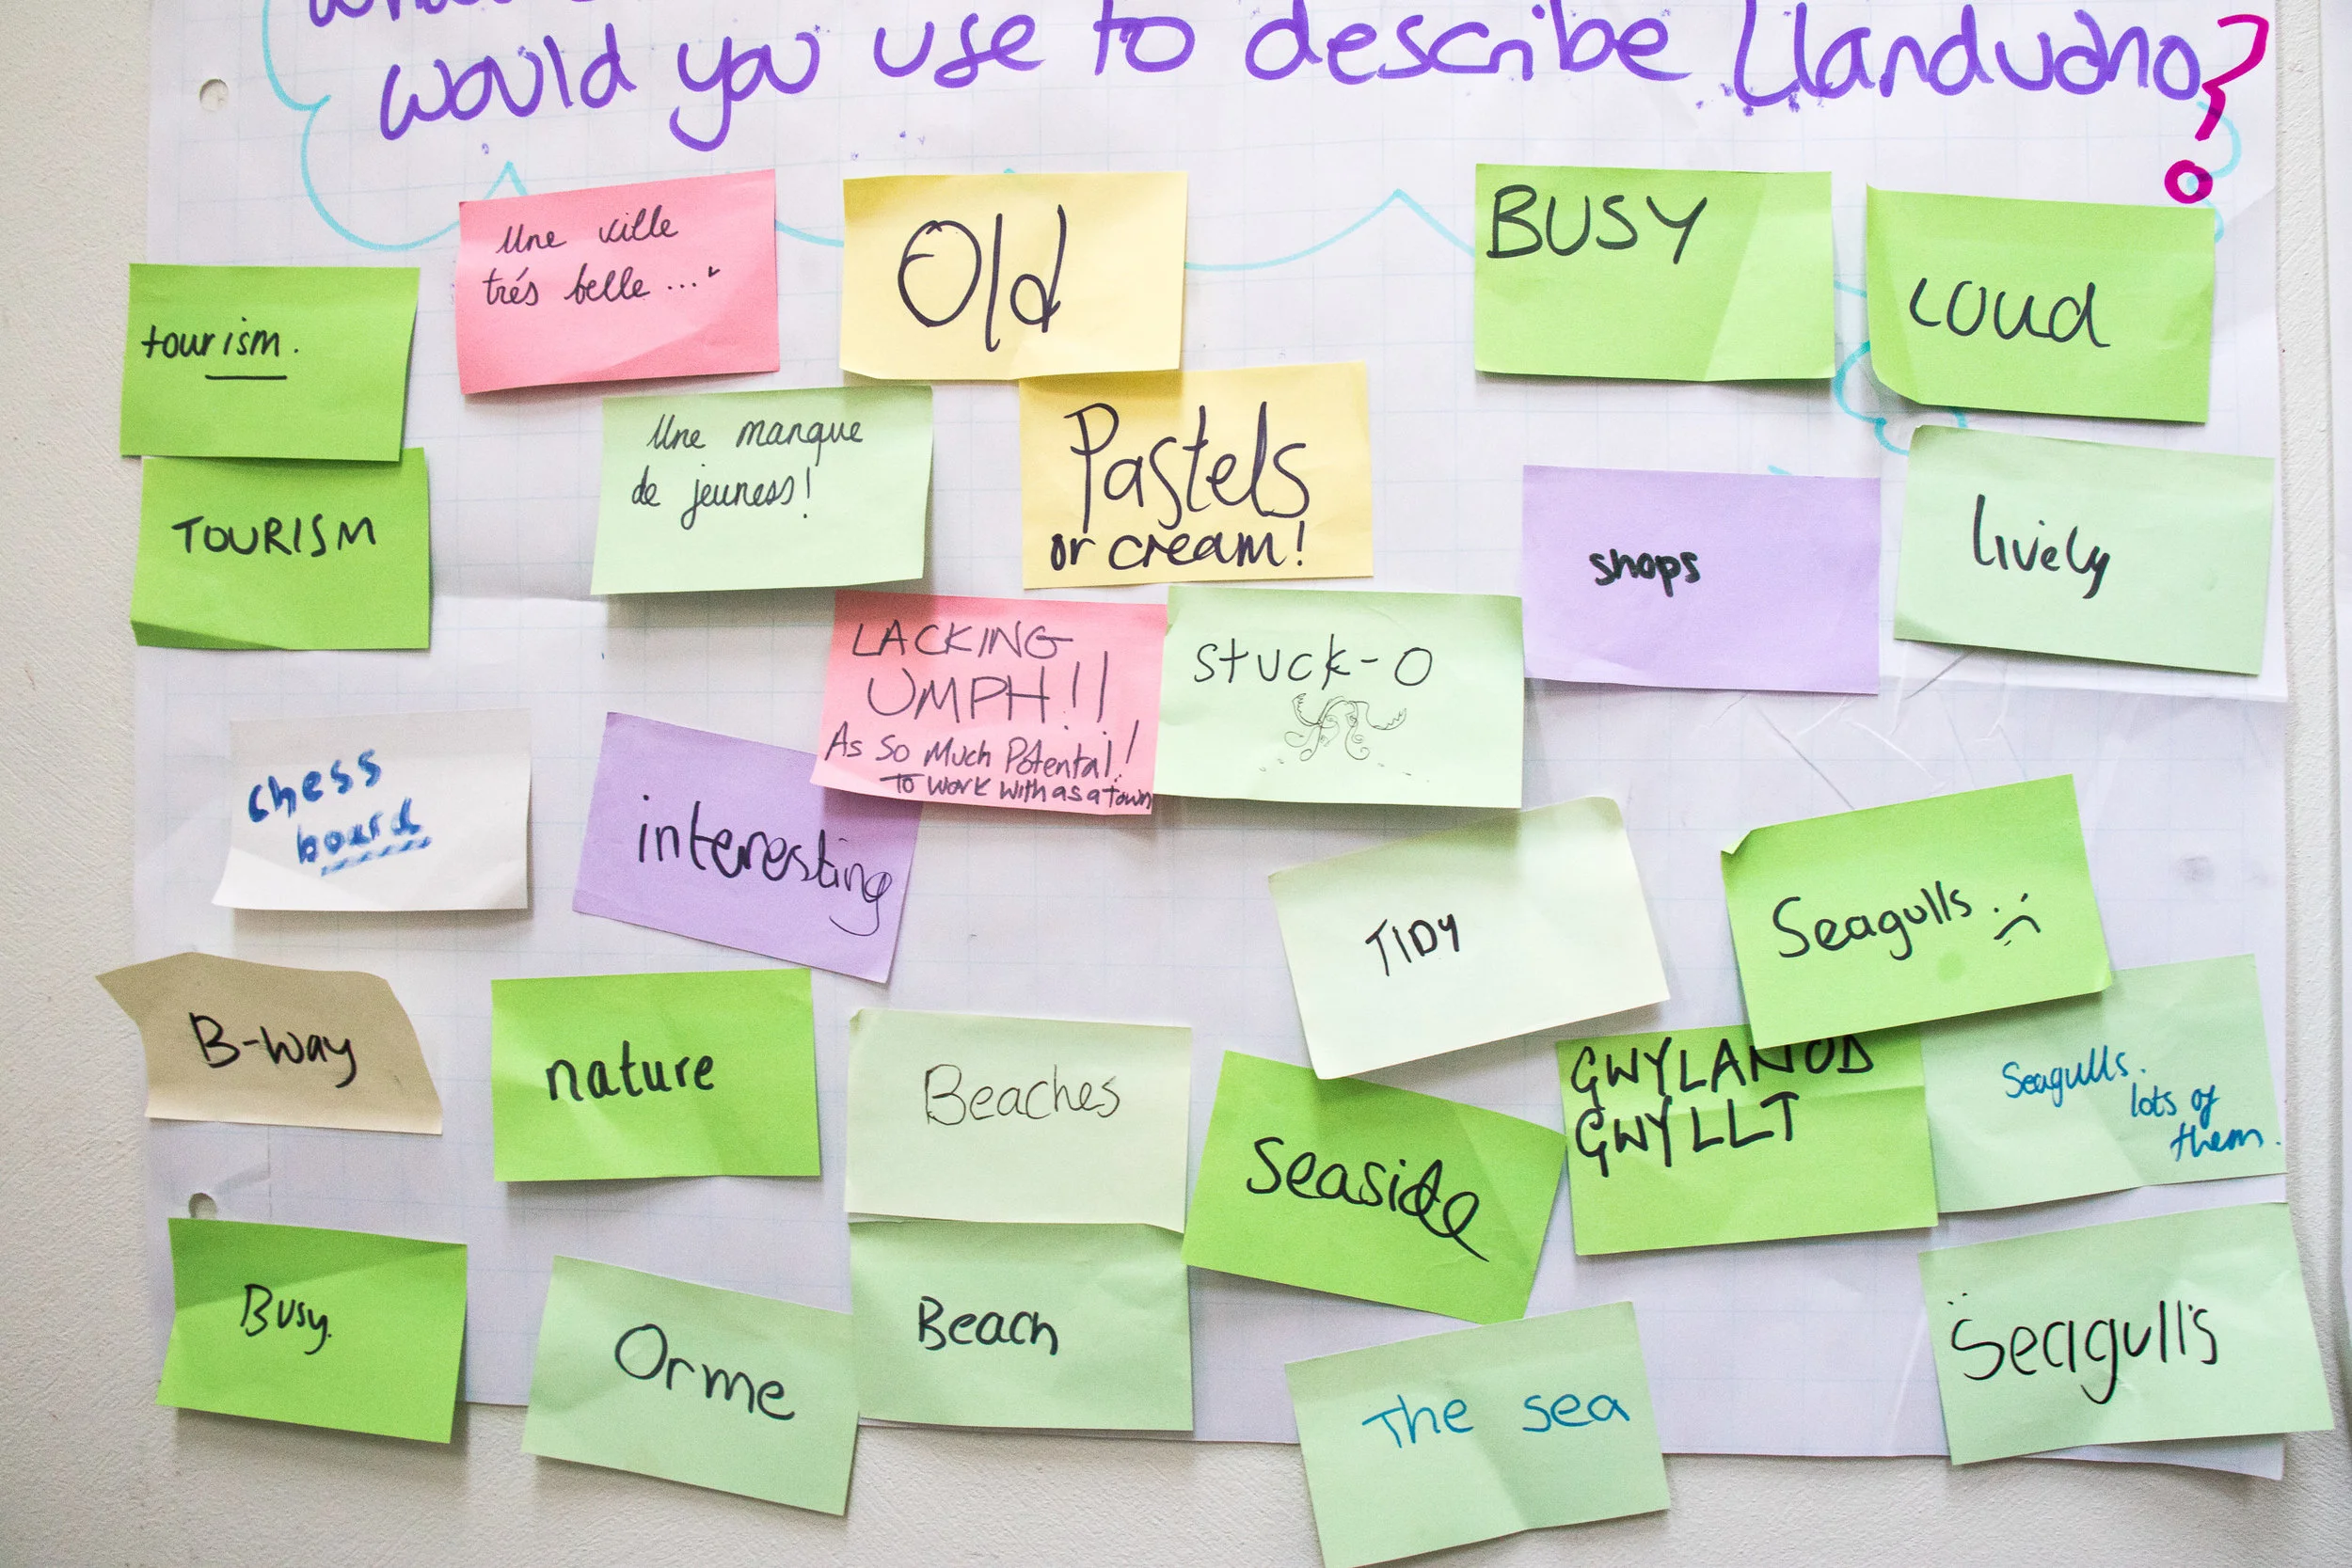 would you use to describe Llandudno?
tourism.
Une ville
trés belle ...
Old
BUSY
Loud
TOURISM
Une manque
de jeuness!
Pastels
or cream!
shops
lively
LACKING
UMPH!!
As So Much Potental!
To work with as a town
Stuck-O
chess
board
interesting
TIDY
Seagulls :(
B-way
nature
Beaches
Seaside
GWYLANOD
GWYLLT
Seagulls.
lots of
them.
Busy.
Orme
Beach
The sea
Seagulls